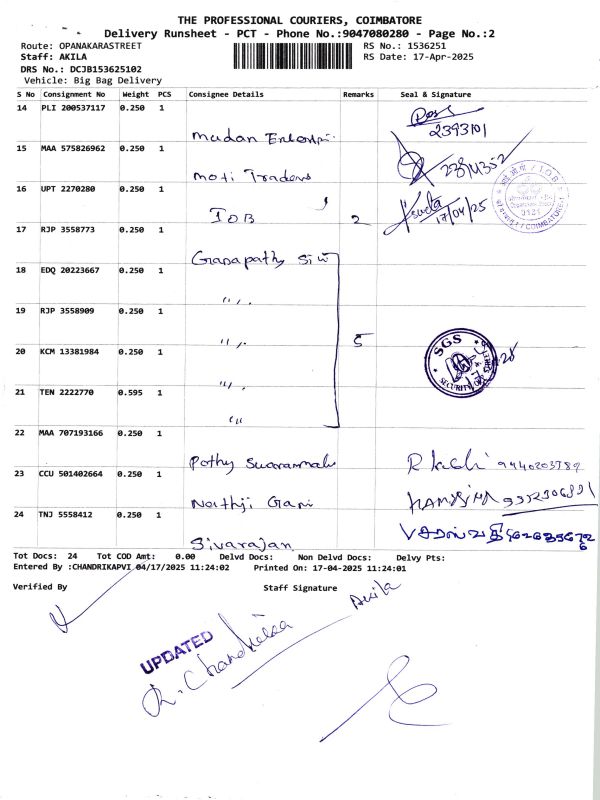 THE PROFESSIONAL COURIERS, COIMBATORE
Delivery Runsheet - PCT - Phone No.:9047080280 - Page No.:2
Route: OPANAKARASTREET RS No.: 1536251
Staff: AKILA RS Date: 17-Apr-2025
DRS No.: DCJB153625102
Vehicle: Big Bag Delivery
S No Consignment No Weight PCS Consignee Details Remarks Seal & Signature
14 PLI 200537117 0.250 1
2393101
15 MAA 575826962 0.250 1
Moti Traders
16 UPT 2270280 0.250 1
IOB 2 17/04/25
17 RJP 3558773 0.250 1
Ganapathy Silk
18 EDQ 20223667 0.250 1
"
19 RJP 3558909 0.250 1
" 5 SGS
20 KCM 13381984 0.250 1
"
21 TEN 2222770 0.595 1
"
22 MAA 707193166 0.250 1
Pothy Swarnamahal 9440203789
23 CCU 501402664 0.250 1
Nathji
24 TNJ 5558412 0.250 1
Sivarajan
Tot Docs: 24 Tot COD Amt: 0.00 Delvd Docs: Non Delvd Docs: Delvy Pts:
Entered By :CHANDRIKAPVI 04/17/2025 11:24:02 Printed On: 17-04-2025 11:24:01
Verified By Staff Signature
Akila
UPDATED
R. Chandrika